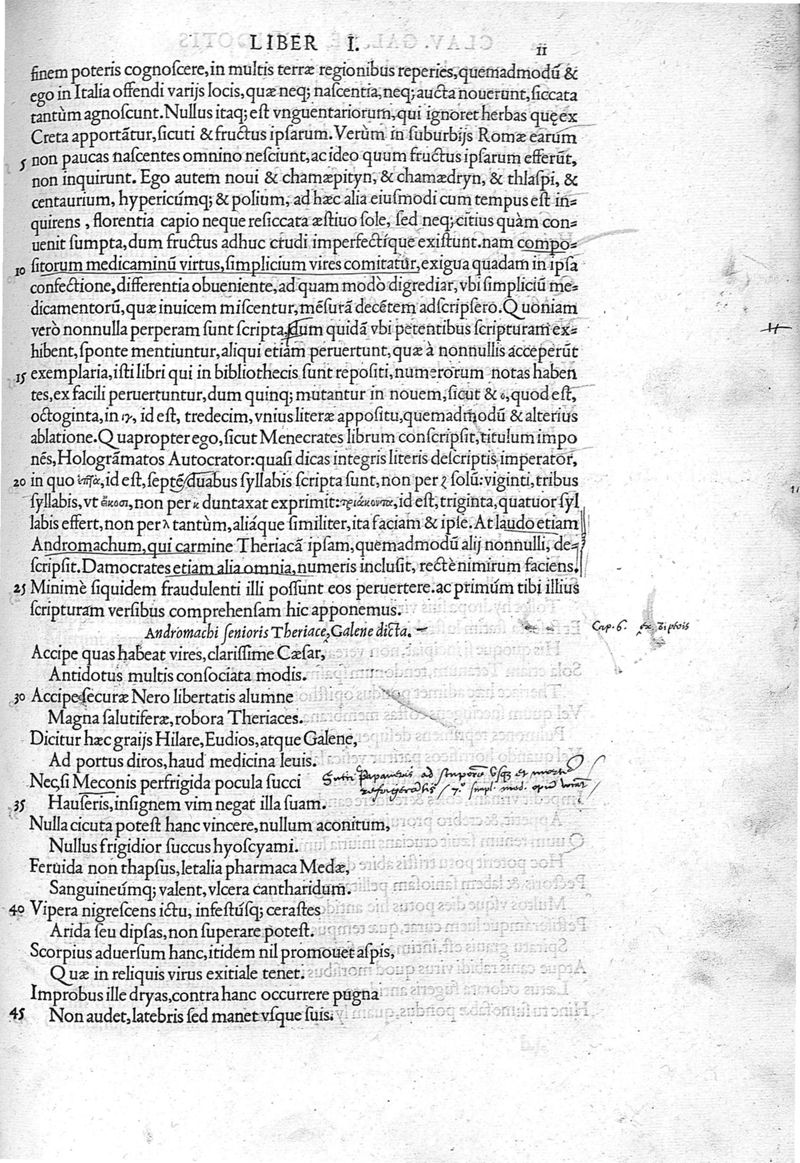 LIBER I. 11
finem poteris cognoscere, in multis terræ regionibus reperies, quemadmodũ &
ego in Italia offendi varijs locis, quæ neq; nascentia, neq; aucta nouerunt, siccata
tantùm agnoscunt. Nullus itaq; est vnguentariorum, qui ignoret herbas quę ex
Creta apportãtur, sicuti & fructus ipsarum. Verùm in suburbijs Romæ earum
5 non paucas nascentes omnino nesciunt, ac ideo quum fructus ipsarum efferũt,
non inquirunt. Ego autem noui & chamæpityn, & chamædryn, & thlaspi, &
centaurium, hypericúmq; & polium, ad hæc alia eiusmodi cum tempus est in=
quirens, florentia capio neque resiccata æstiuo sole, sed neq; citius quàm con=
uenit sumpta, dum fructus adhuc crudi imperfectique existunt. nam compo=
10 sitorum medicaminũ virtus, simplicium vires comitatur, exigua quadam in ipsa
confectione, differentia obueniente, ad quam modò digrediar, vbi simpliciũ me=
dicamentorũ, quæ inuicem miscentur, mẽsurã decẽtem adscripsero. Quoniam
verò nonnulla perperam sunt scripta, dum quidã vbi petentibus scripturam ex=
hibent, sponte mentiuntur, aliqui etiam peruertunt, quæ à nonnullis acceperũt
15 exemplaria, isti libri qui in bibliothecis sunt repositi, numerorum notas haben
tes, ex facili peruertuntur, dum quinq; mutantur in nouem, sicut & ο, quod est,
octoginta, in ιγ, id est, tredecim, vnius literæ appositu, quemadmodũ & alterius
ablatione. Quapropter ego, sicut Menecrates librum conscripsit, titulum impo
nẽs, Hologrãmatos Autocrator: quasi dicas integris literis descriptis imperator,
20 in quo ἑπτὰ, id est, septẽ duabus syllabis scripta sunt, non per ζ solũ: viginti, tribus
syllabis, vt εἴκοσι, non per κ duntaxat exprimit: τριάκοντα, id est, triginta, quatuor syl
labis effert, non per λ tantùm, aliáque similiter, ita faciam & ipse. At laudo etiam
Andromachum, qui carmine Theriacã ipsam, quemadmodũ alij nonnulli, de=
scripsit. Damocrates etiam alia omnia, numeris inclusit, rectè nimirum faciens.
25 Minimè siquidem fraudulenti illi possunt eos peruertere. ac primùm tibi illius
scripturam versibus comprehensam hic apponemus.
Andromachi senioris Theriace, Galene dicta. Cap. 6.
Accipe quas habeat vires, clarissime Cæsar,
Antidotus multis consociata modis.
30 Accipe securæ Nero libertatis alumne
Magna salutiferæ, robora Theriaces.
Dicitur hæc graijs Hilare, Eudios, atque Galene,
Ad portus diros, haud medicina leuis.
Nec, si Meconis perfrigida pocula succi
35 Hauseris, insignem vim negat illa suam.
Nulla cicuta potest hanc vincere, nullum aconitum,
Nullus frigidior succus hyoscyami.
Feruida non thapsus, letalia pharmaca Medæ,
Sanguineúmq; valent, vlcera cantharidum.
40 Vipera nigrescens ictu, infestúsq; cerastes
Arida seu dipsas, non superare potest.
Scorpius aduersum hanc, itidem nil promouet aspis,
Quæ in reliquis virus exitiale tenet.
Improbus ille dryas, contra hanc occurrere pugna
45 Non audet, latebris sed manet vsque suis.